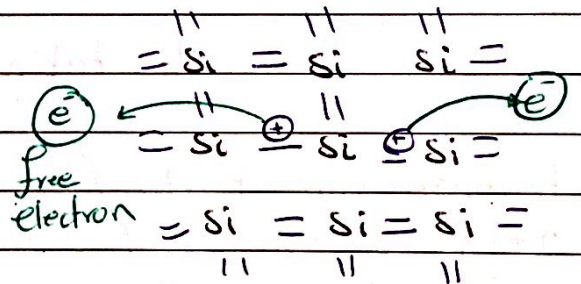 = Si = Si Si =
e⁻ = Si + Si + Si = e⁻
free
electron = Si = Si = Si =